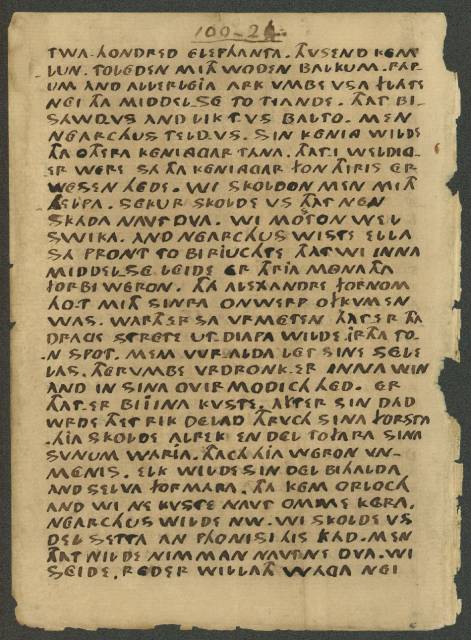 100-2
TWA. HONDRED ELEPHANTA. THVSEND KEM
LUN. TOLEDEN MITH WODEN BALKUM. RAP_
UM AND ALLERLEJA ARK VMBE VSA FLATE
NEI THA MIDDEL.SE TO TIANDE. THAT BI_
SAWD.VS AND LIK T VS BALTO. MEN
NEARCHUS TELD.VS. SIN KENING WILDE
THA OTHERA KENINGGAR TANA. THAT.I WELDIG_
ER WERE SA THA KENINGGAR FON THIRIS ER
WESEN HEDE. WI SKOLDON MEN MITH
HELPA. SEKUR SKOLDE VS THAT NEN
SKADA NAVT DVA. WI MOSTON WEL
SWIKA. AND NEARCHUS WISTE ELLA
SA PRONT TO BIRIUCHTE. THAT WI INNA
MIDDEL.SE LEIDE ER THRIA MONATHA
FORBI WERON. THA ALEXANDRE FORNOM
HO.T MITH SINRA ONWERP OFKVMEN
WAS. WARTH ER SA VRMETEN THAT ER THA
DRAGE STRETE UT.DIAPA WILDE. IRTHA TO_
.N SPOT. MEM WR.ALDA LET SINE SELE
LAS. THERVMBE VRDRONK.ER INNA WIN
AND IN SINA OVIRMODICHHED. ER
THAT.ER BIJINA KVSTE. AFTER SIN DAD
WRDE THET RIK DELAD THRVCH SINA FORSTA
.HIA SKOLDE ALREK EN DEL TO FARA SINA
SVNUM WARIA. THACH HIA WERON VN_
MENIS. ELK WILDE SIN DEL BIHALDA
AND SELVA FORMARA. THA KEM ORLOCH
AND WI NE KVSTE NAVT OMME KERA.
NEARCHUS WILDE NW. WI SKOLDE VS
DEL SETTA AN PHONISI HIS KAD. MEN
THAT NILDE NIMMAN NAVT NE DVA. WI
SEIDE. REDER WILLATH WAGA NEI